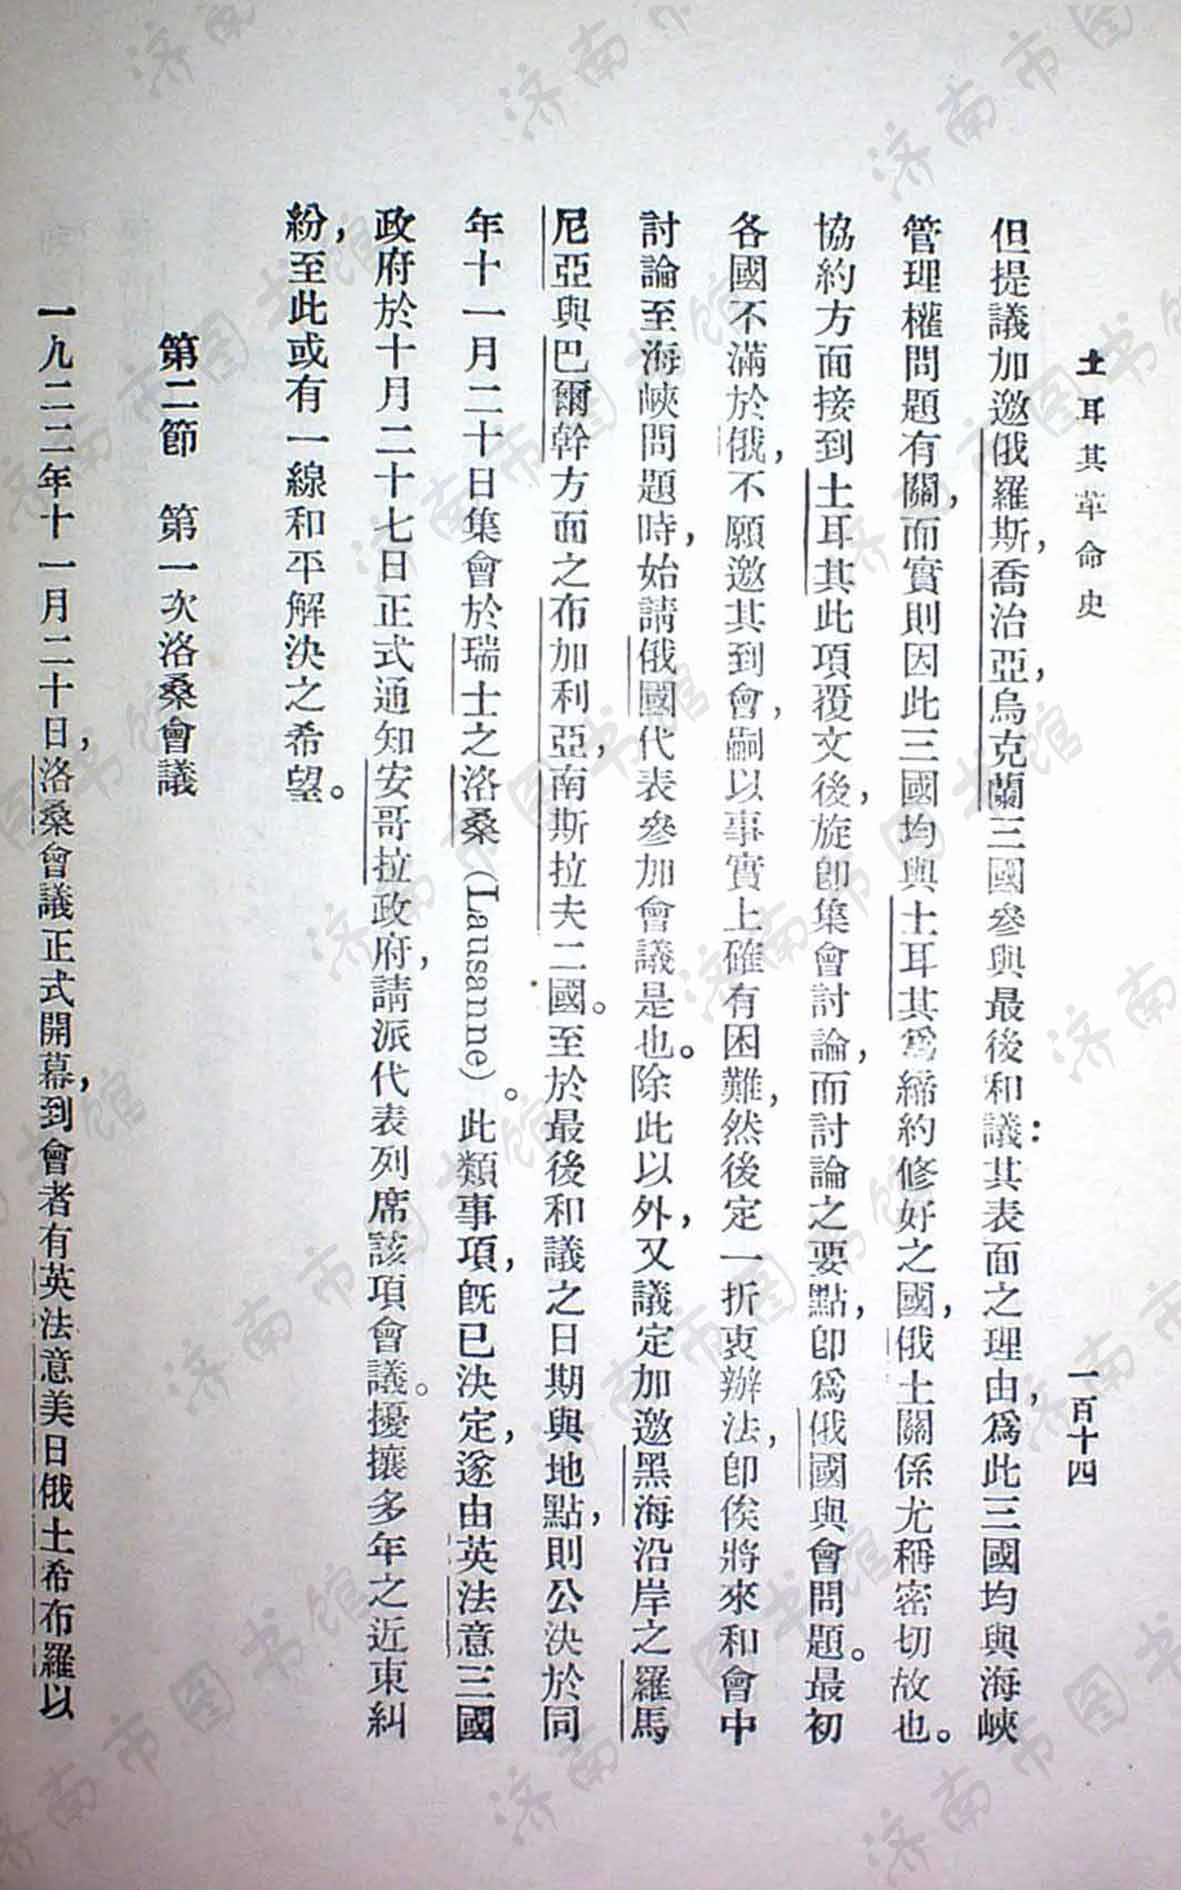 土耳其革命史
一百十四
但提議加邀俄羅斯，喬治亞，烏克蘭三國參與最後和議：其表面之理由，爲此三國均與海峽
管理權問題有關，而實則因此三國均與土耳其爲締約修好之國，俄土關係尤稱密切故也。
協約方面接到土耳其此項覆文後，旋卽集會討論，而討論之要點，卽爲俄國與會問題。最初
各國不滿於俄，不願邀其到會，嗣以事實上確有困難，然後定一折衷辦法，卽俟將來和會中
討論至海峽問題時，始請俄國代表參加會議是也。除此以外，又議定加邀黑海沿岸之羅馬
尼亞與巴爾幹方面之布加利亞，南斯拉夫二國。至於最後和議之日期與地點，則公決於同
年十一月二十日集會於瑞士之洛桑（Lansanne）。此類事項，旣已決定，遂由英法意三國
政府於十月二十七日正式通知安哥拉政府，請派代表列席該項會議。擾攘多年之近東糾
紛，至此或有一線和平解決之希望。
第二節　第一次洛桑會議
一九二二年十一月二十日，洛桑會議正式開幕，到會者有英法意美日俄土希布羅以
济南市图书馆